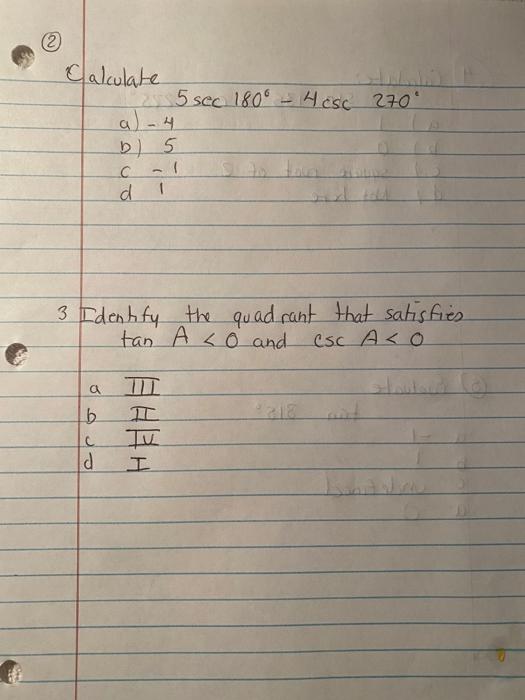 2
Calculate
5 sec 180° - 4 csc 270°
a) - 4
b) 5
c - 1
d 1
3 Identify the quadrant that satisfies
tan A < 0 and csc A < 0
a III
b II
c IV
d I